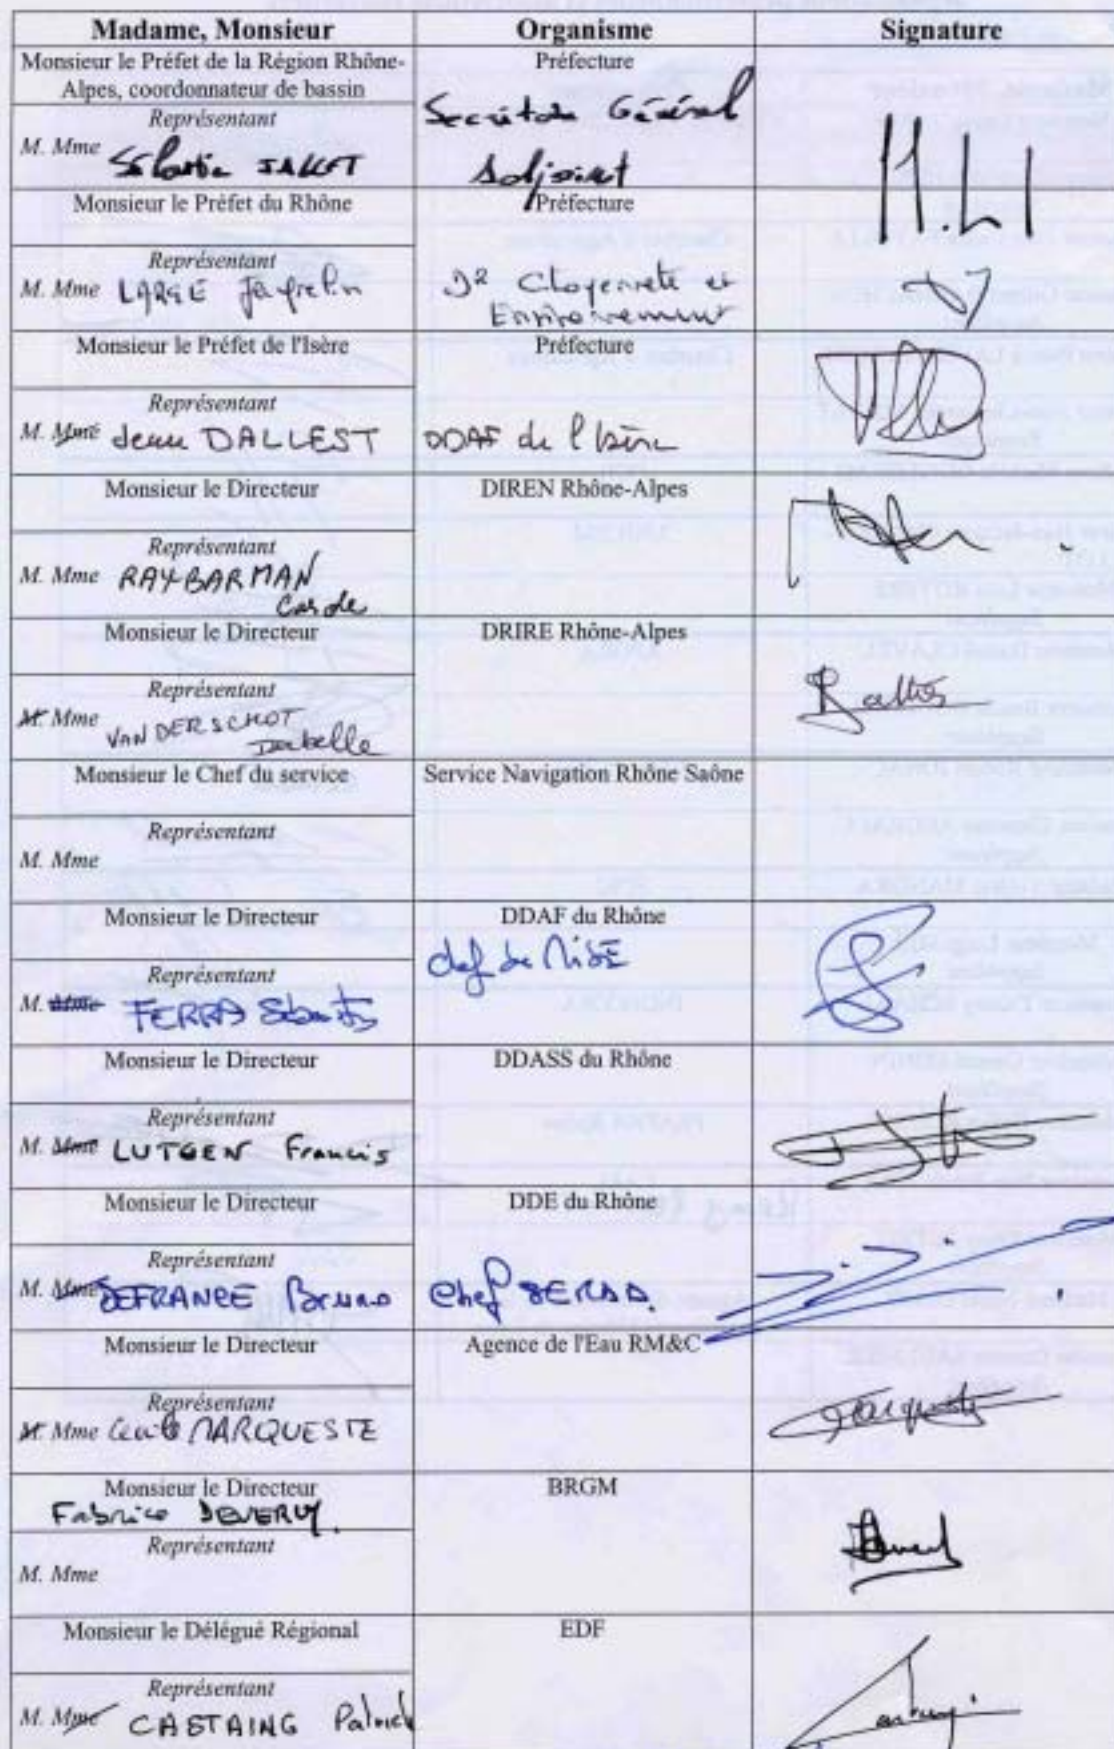 Madame, Monsieur Organisme Signature
Monsieur le Préfet de la Région Rhône- Préfecture
Alpes, coordonnateur de bassin
Représentant Secrétaire Général
M. Mme JALLET Adjoint
Monsieur le Préfet du Rhône Préfecture
Représentant
M. Mme LARGE D2 Citoyenneté et
Environnement
Monsieur le Préfet de l'Isère Préfecture
Représentant
M. Mme Jean DALLEST DDAF de l'Isère
Monsieur le Directeur DIREN Rhône-Alpes
Représentant
M. Mme RAYBARMAN
Carole
Monsieur le Directeur DRIRE Rhône-Alpes
Représentant
M. Mme VANDERSCHOT
Isabelle
Monsieur le Chef du service Service Navigation Rhône Saône
Représentant
M. Mme
Monsieur le Directeur DDAF du Rhône
chef de MISE
Représentant
M. Mme FERRA
Monsieur le Directeur DDASS du Rhône
Représentant
M. Mme LUTGEN Francis
Monsieur le Directeur DDE du Rhône
Représentant
M. Mme DEFRANCE Bruno Chef
Monsieur le Directeur Agence de l'Eau RM&C
Représentant
M. Mme Cécile MARQUESTE
Monsieur le Directeur BRGM
Fabrice
Représentant
M. Mme
Monsieur le Délégué Régional EDF
Représentant
M. Mme CASTAING Patrick